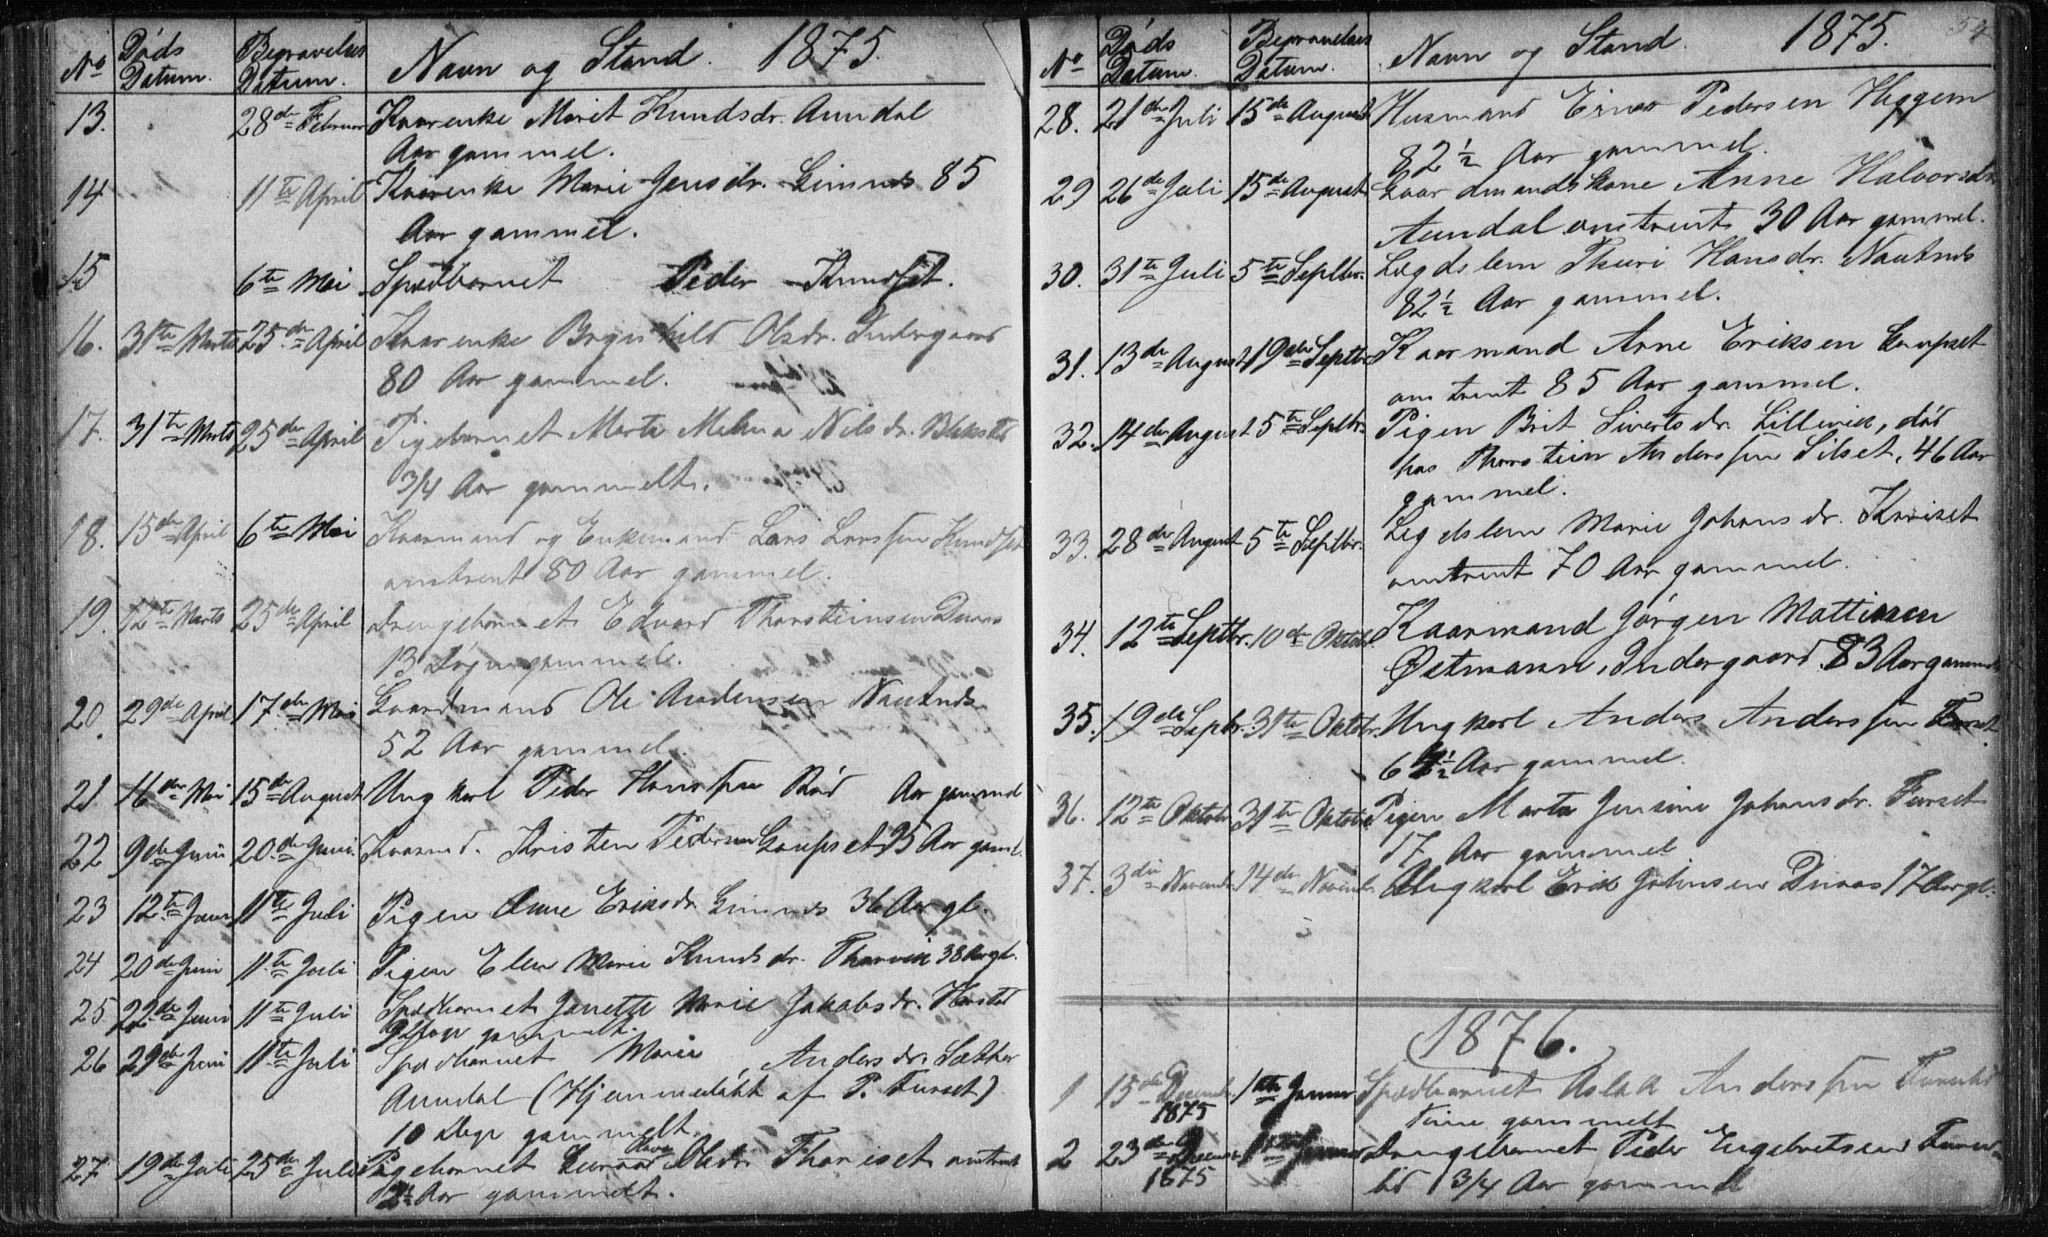 No Døds Datum. Begravelses Datum. Navn og Stand. 1875.
13. 28de Februar Kaarenke Marit Knudsdr. Aundal
Aar gammel.
14 11te April Kaarenke Marie Jensdr. Gimnes 85
Aar gammel.
15 6te Mai Spædbarnet Peder Knudset.
16. 31te Marts 25de April Kaarenke Brynhild Olsdr. Indergaard
80 Aar gammel.
17. 31te Marts 25de April Pigebarnet Marta Nilsdr.
3/4 Aar gammelt.
18. 15de April 6te Mai Kaarmand og Enkemand Lars Larssen
omtrent 80 Aar gammel.
19. 12te Marts 25de April Drengebarnet Edvard Thorsteinsen
13 gammelt.
20. 29de April 17de Mai Gaardmand Ole Andersen
52 Aar gammel.
21 16de Mai 15de August Ungkarl Peder Hanssen Bød Aar gammel
22 9de Juni 20de Juni Kaarmd. Kristen Pedersen Aar gaml.
23 12te Juni 11te Juli Pigen Anne Eriksdr. Gimnes 36 Aar gl.
24 20de Juni 11te Juli Pigen Elen Marie Knudsdr. Thorvik 38 Aar gl.
25 22de Juni 11te Juli Spædbarnet Marie Jakobsdr.
gammelt.
26 29de Juni 11te Juli Spædbarnet Marie Andersdr. Sæther
Aundal (Hjemmedøbt af P. Furset)
10 Dage gammelt.
27. 19de Juli 25de Juli Pigebarnet Olsdr. omtrent
2½ Aar gammelt.
54
No Døds Datum. Begravelses Datum. Navn og Stand. 1875.
28. 21de Juli 15de August Husmand Pedersen Heggem
82½ Aar gammel.
29 26de Juli 15de August Gaardmandskone Anne Halvorsdr.
Aundal omtrent 30 Aar gammel.
30. 31te Juli 5te Septbr. Lægdslem Thuri Hansdr.
82½ Aar gammel.
31. 13de August 19de Septbr. Kaarmand Arne Eriksen
omtrent 85 Aar gammel.
32. 14de August 5te Septbr. Pigen Brit Sivertsdr. Lillevik, død
hos Thorstein Anderssen Silset, 46 Aar
gammel.
33. 28de August 5te Septbr. Legdslem Marie Johansdr.
omtrent 70 Aar gammel.
34. 12te Septbr. 10de Oktobr. Kaarmand Jørgen Mattissen
Østmann, Indergaard 83 Aar gammel
35. 19de Septbr. 31te Oktobr. Ungkarl Anders Anderssen Furset.
Aar gammel.
36. 12te Oktobr. 31te Oktobr. Pigen Marta Jensine Johansdr. Furset
17 Aar gammel
37. 3die Novembr. 14de Novembr. Ungkarl Erik Johnsen 17 Aar gl.
1876.
1 15de Decembr. 1875 1ste Januar Spædbarnet Aslak Anderssen
gammelt
2 23de 1875 Drengebarnet Peder Engebretsen
lid 1 3/4 Aar gammel